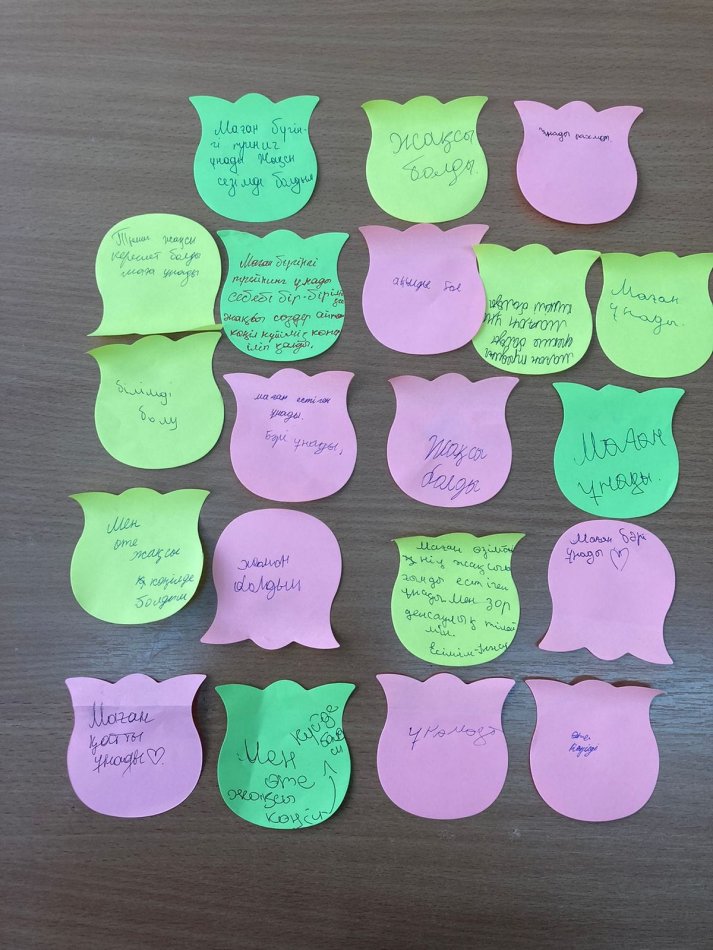 Маған бүгін-
гі
ұнады Жақсы
сезімде болдым
Жақсы
болды.
ұнады рахмет.
жақсы
керемет болды
маған ұнады
Маған бүгінгі
ұнады
себебі бір-бірімізге
жақсы сөздер айтып
көңіл күйіміз көте
іліп қалды.
ақылды бол
маған ұна
Маған
ұнады.
білімді
болу
маған естіген
ұнады.
бәрі ұнады,
Жақсы
болды
Маған
ұнады.
Мен
өте
жақсы
көңілде
болдым
жаман
болдым
Маған өзімнің
жақсы
естіген
ұнады. Мен зор
денсаулық тілей
мін.
Есімім-
Маған бәрі
ұнады ♡
Маған
қатты
ұнады ♡.
Мен
өте
жақсы
көңіл
күйде
ұнамады
өте